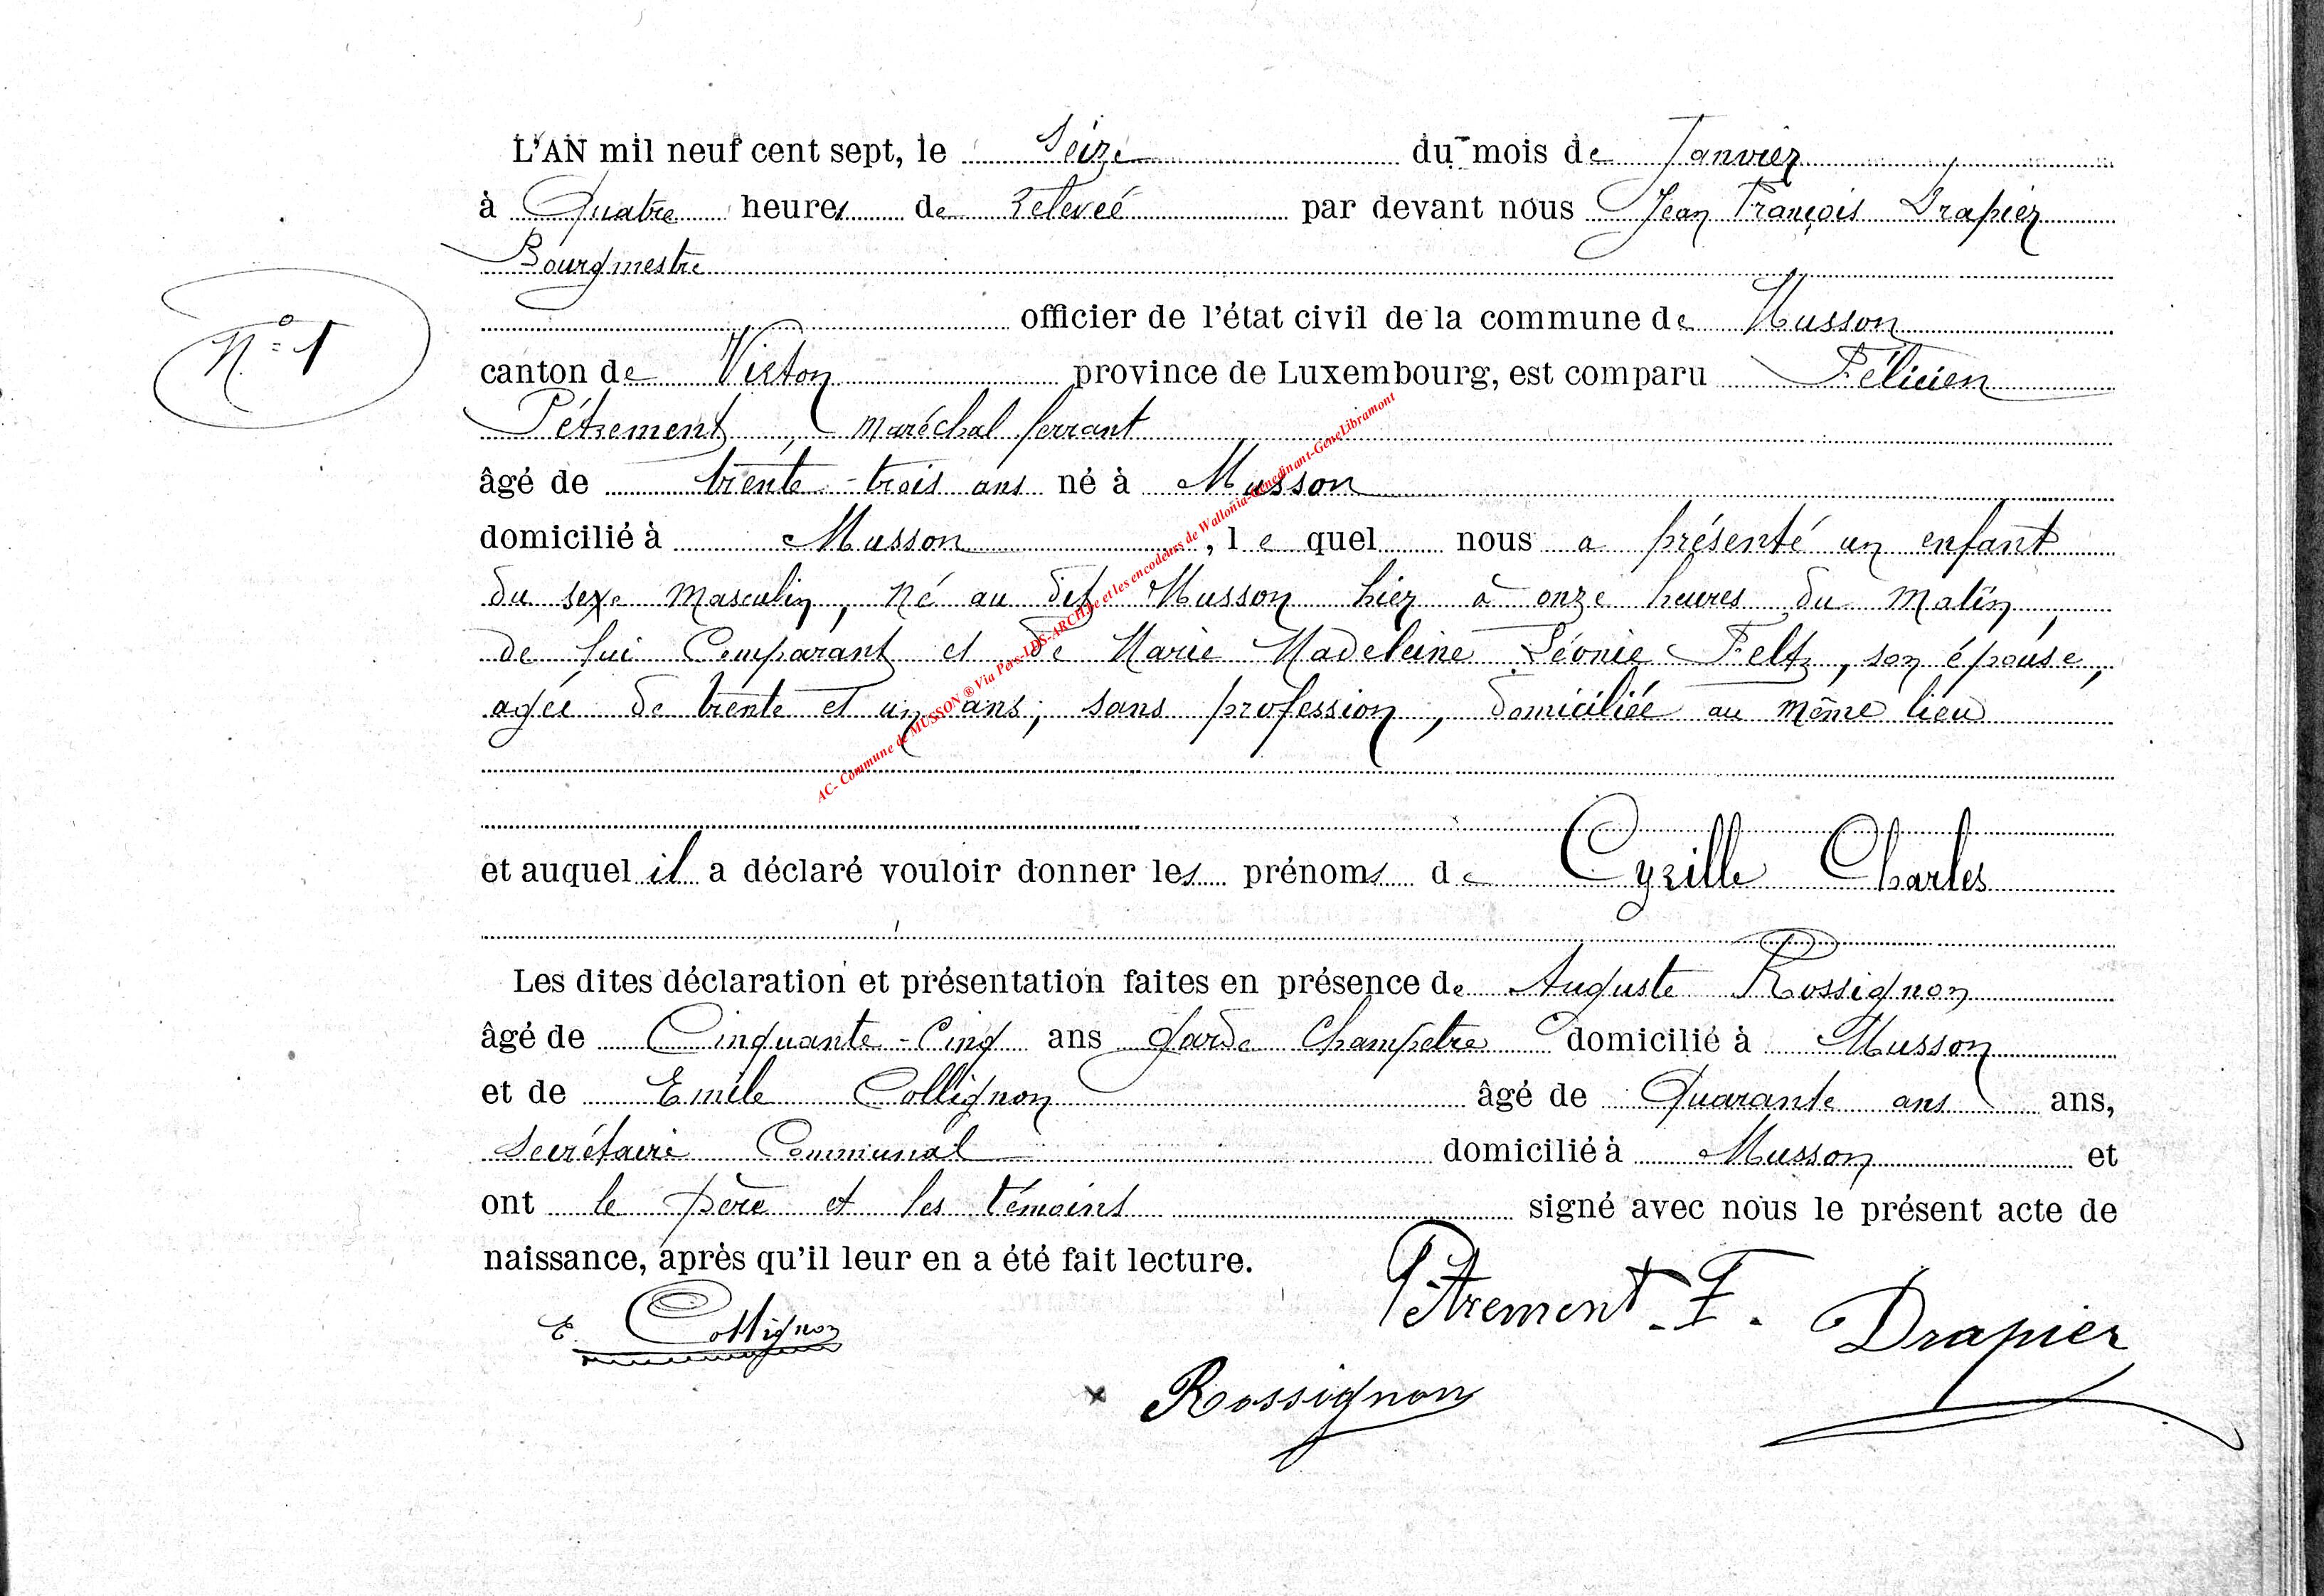 L'AN mil neuf cent sept, le Seize du mois de Janvier
à Quatre heures de Relevée par devant nous Jean François Drapier
Bourgmestre
officier de l'état civil de la commune de Musson
N° 1
canton de Virton province de Luxembourg, est comparu Félicien
Pétrement, Maréchal ferrant
âgé de trente-trois ans né à Musson
domicilié à Musson, le quel nous a présenté un enfant
du sexe Masculin, né au dit Musson hier à onze heures du Matin,
de lui Comparant et de Marie Madeleine Léonie Feltz, son épouse,
agée de trente et un ans, sans profession, domiciliée au même lieu
AC- Commune de MUSSON ® Via Pers-LDS-ARCH.be et les encodeurs de Wallonia-Genedinant-GeneLibramont
et auquel il a déclaré vouloir donner les prénoms de Cyrille Charles
Les dites déclaration et présentation faites en présence de Auguste Rossignon
âgé de Cinquante-Cinq ans Garde Champetre domicilié à Musson
et de Emile Collignon âgé de Quarante ans ans,
Secrétaire Communal domicilié à Musson et
ont le père et les témoins signé avec nous le présent acte de
naissance, après qu'il leur en a été fait lecture.
E. Collignon
Pétrement. F.
Drapier
x Rossignon